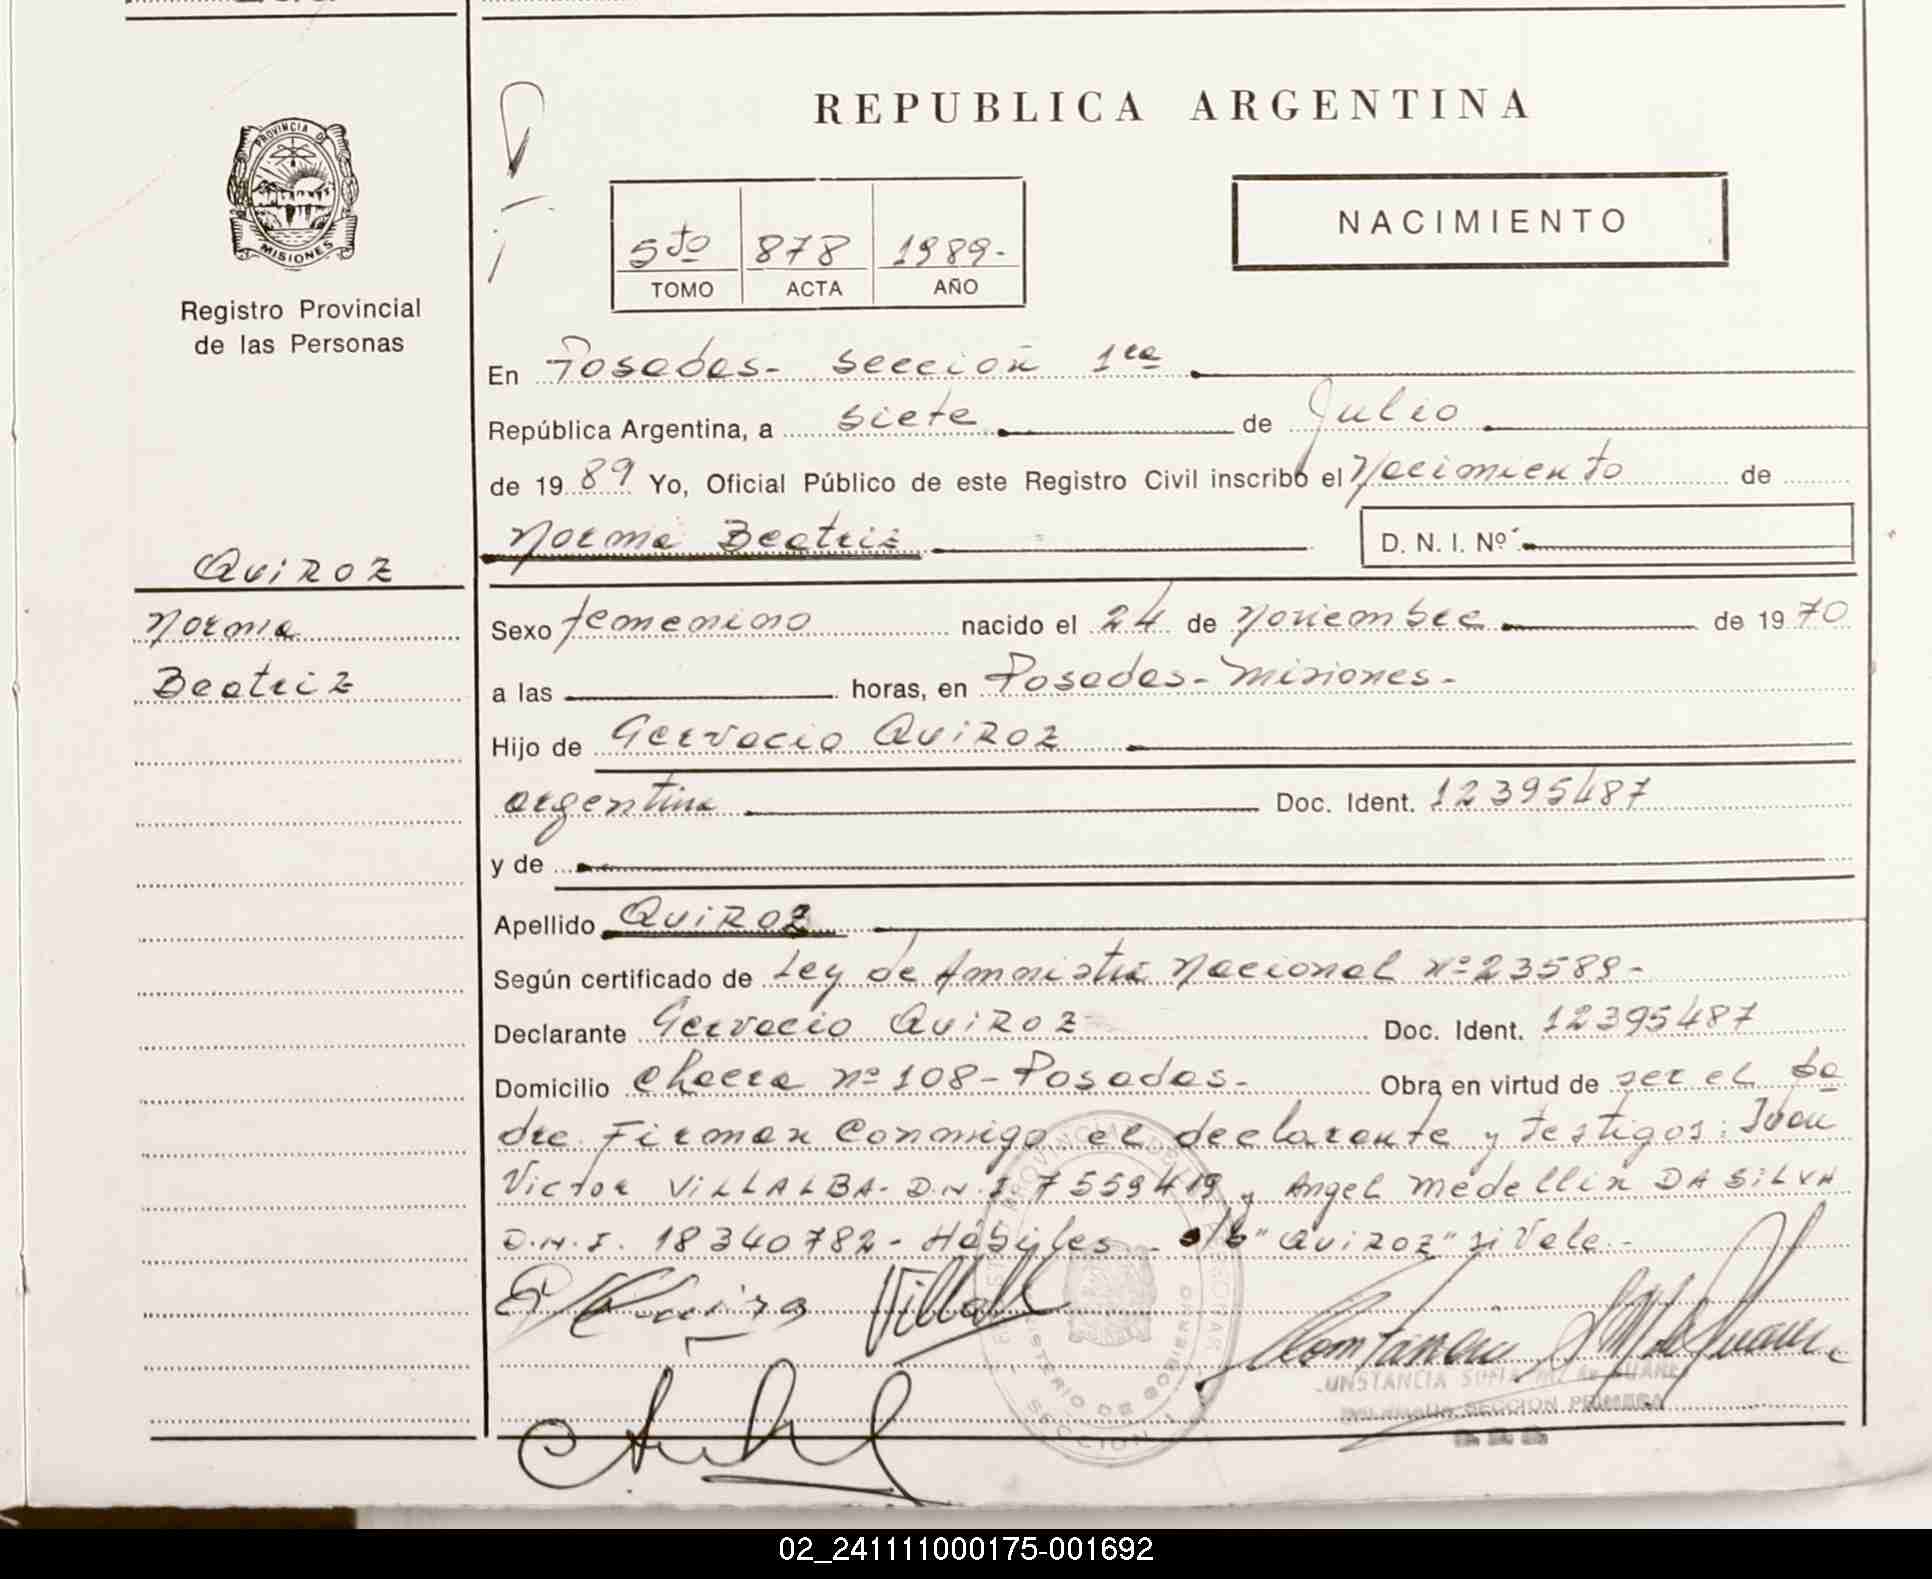 REPUBLICA ARGENTINA
NACIMIENTO
PROVINCIA DE
MISIONES
Registro Provincial
de las Personas
5to 878 1989-
TOMO ACTA AÑO
En Posadas- Sección 1ra
República Argentina, a siete de Julio
de 1989 Yo, Oficial Público de este Registro Civil inscribo el Nacimiento de
Norma Beatriz D. N. I. Nº
QuiROZ
Norma
Beatriz
Sexo femenino nacido el 24 de Noviembre de 1970
a las horas, en Posadas- Misiones-
Hijo de Gervacio QuiROZ
argentina Doc. Ident. 12395487
y de
Apellido QuiROZ
Según certificado de Ley de Amnistia Nacional nº 23589-
Declarante Gervacio QuiROZ Doc. Ident. 12395487
Domicilio Chacra nº 108- Posadas- Obra en virtud de ser el pa
dre. Firman Conmigo el declarante y testigos: Juan
Victor ViLLALBA- D.N.I 7559419 y Angel Medellin DA SiLVA
D.N.I. 18340782- Hábiles- s/b "QuiROZ" si Vale-
CONSTANCIA SOFIA
SECCION PRIMERA
02_241111000175-001692